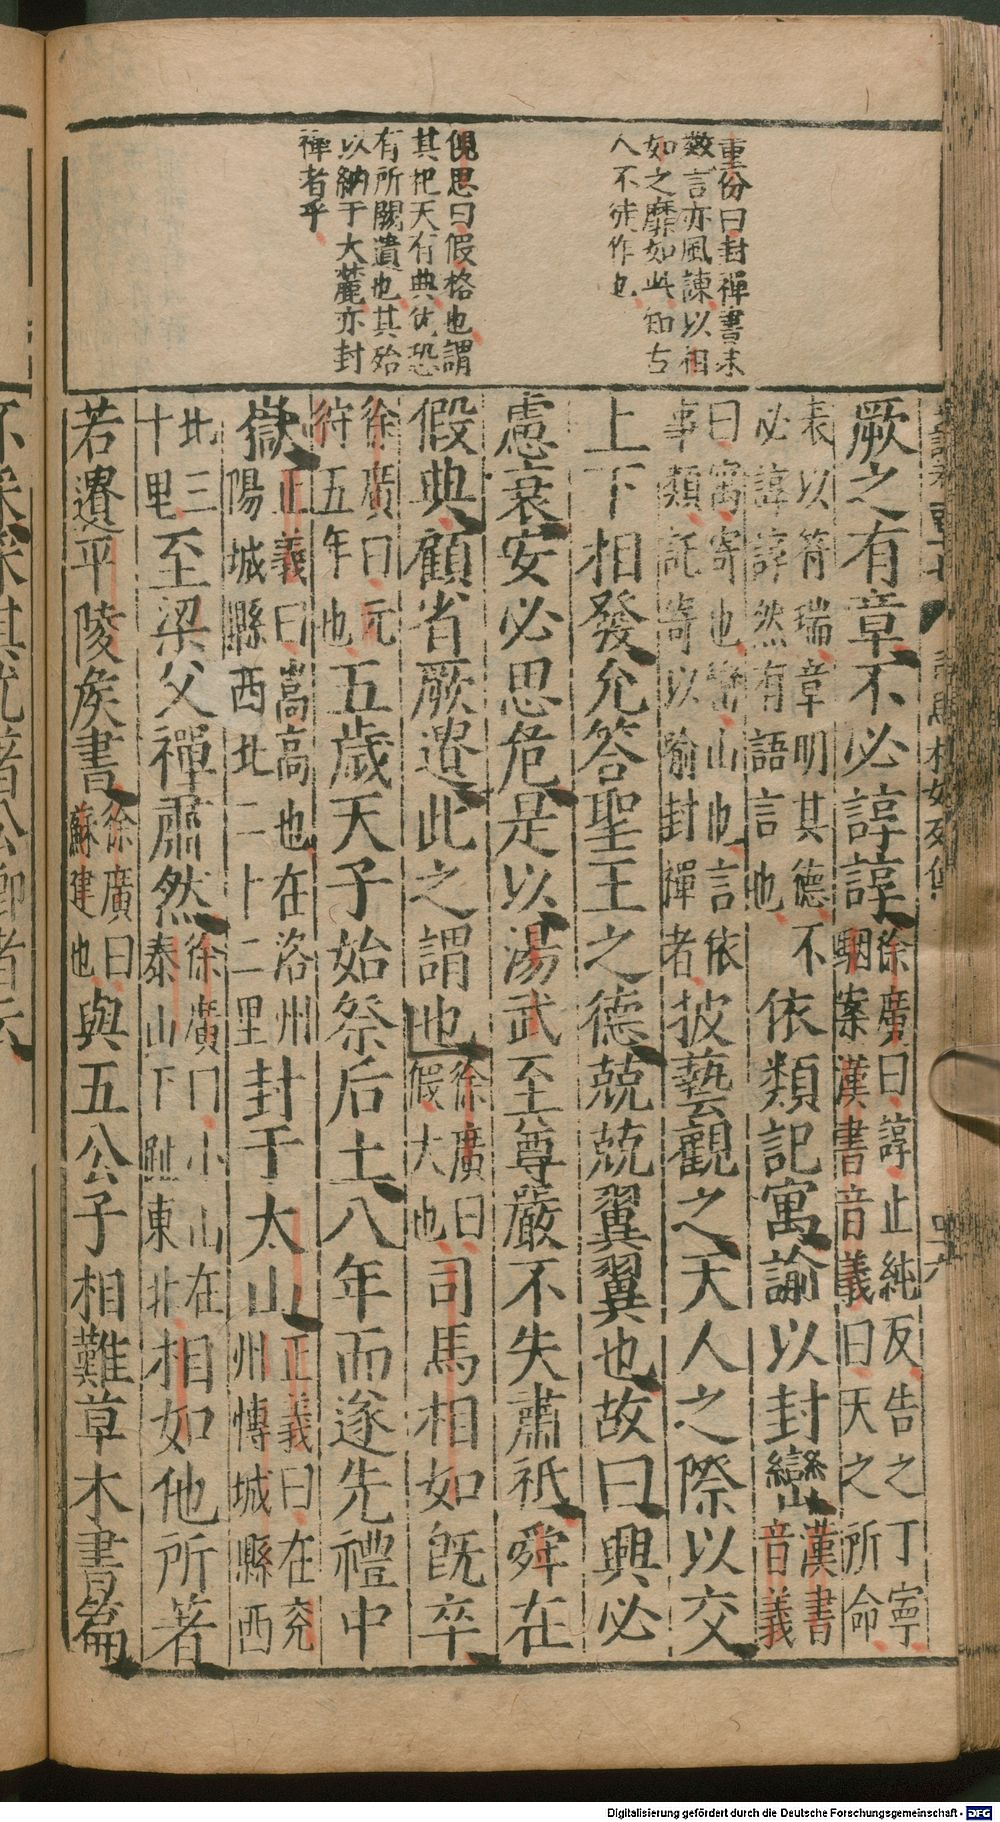 董份曰封禪書末
數言亦風諫以相
如之靡如此知古
人不徒作也
倪思曰假格也謂
其祀天有典猶恐
有所闕遺也其殆
以納于大麓亦封
禪者乎
厥之有章不必諄諄徐廣曰諄止純反告之丁寧
駰案漢書音義曰天之所命
表以符瑞章明其德不
必諄諄然有語言也依類記寓諭以封巒漢書
音義
曰寓寄也巒山也言依
事類託寄以喻封禪者披藝觀之天人之際以交
上下相發允答聖王之德兢兢翼翼也故曰興必
慮衰安必思危是以湯武至尊嚴不失肅祗舜在
假典顧省厥遺此之謂也徐廣曰
假大也司馬相如旣卒
徐廣曰元
狩五年也五歲天子始祭后土八年而遂先禮中
嶽正義曰嵩高也在洛州
陽城縣西北二十二里封于太山正義曰在兖
州博城縣西
北三
十里至梁父禪肅然徐廣曰小山在
泰山下趾東北相如他所著
若遺平陵侯書徐廣曰
蘇建也與五公子相難草木書篇
Digitalisierung gefördert durch die Deutsche Forschungsgemeinschaft - DFG